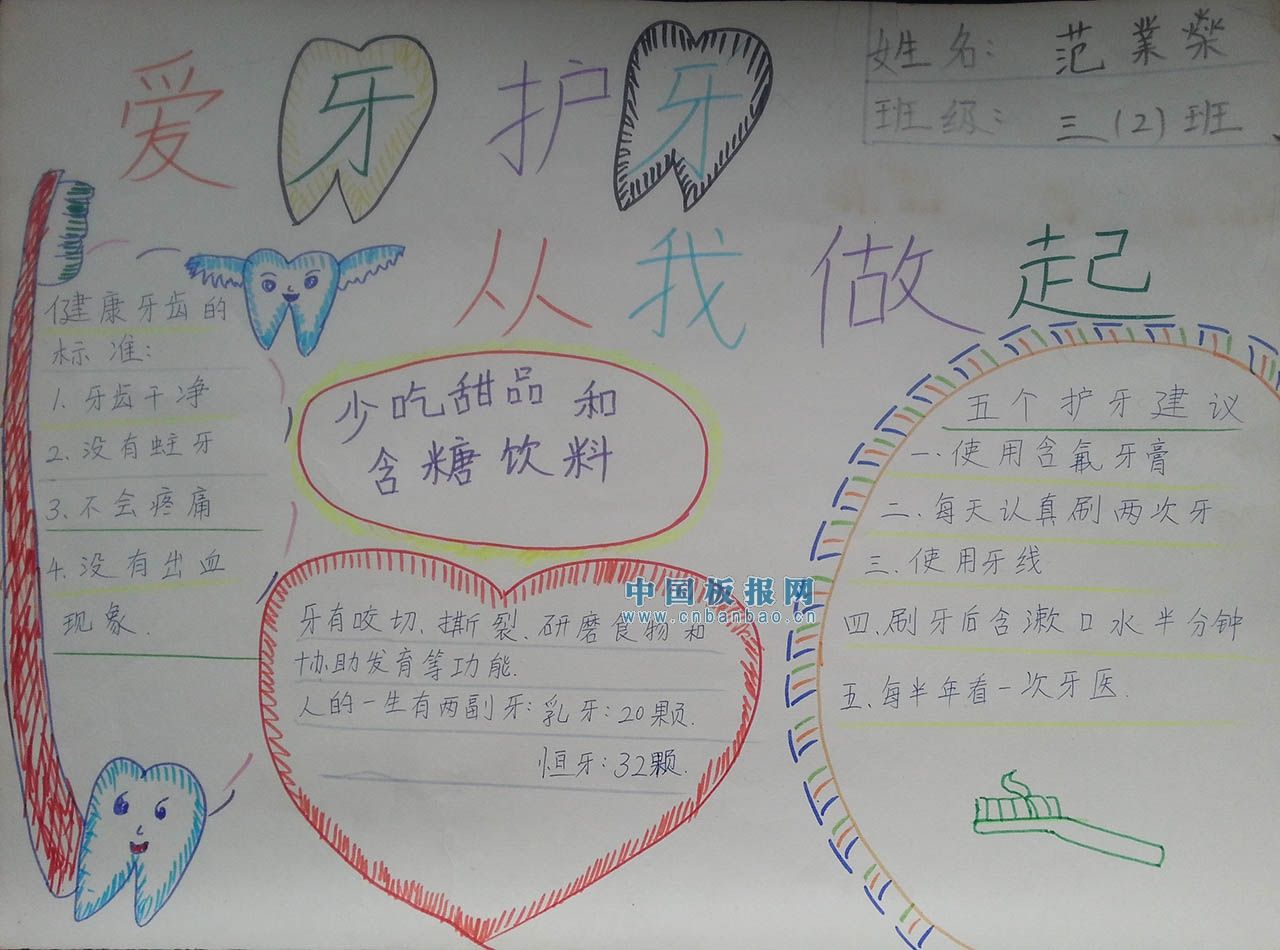 爱牙护牙
从我做起
姓名：范業榮
班级：三（2）班
健康牙齿的
标准：
1、牙齿干净
2、没有蛀牙
3、不会疼痛
4、没有出血
现象.
少吃甜品和
含糖饮料
牙有咬切、撕裂、研磨食物和
协助发育等功能.
人的一生有两副牙：乳牙：20颗.
恒牙：32颗.
五个护牙建议
一、使用含氟牙膏
二、每天认真刷两次牙
三、使用牙线
四、刷牙后含漱口水半分钟
五、每半年看一次牙医.
中国板报网
www.cnbanbao.cn